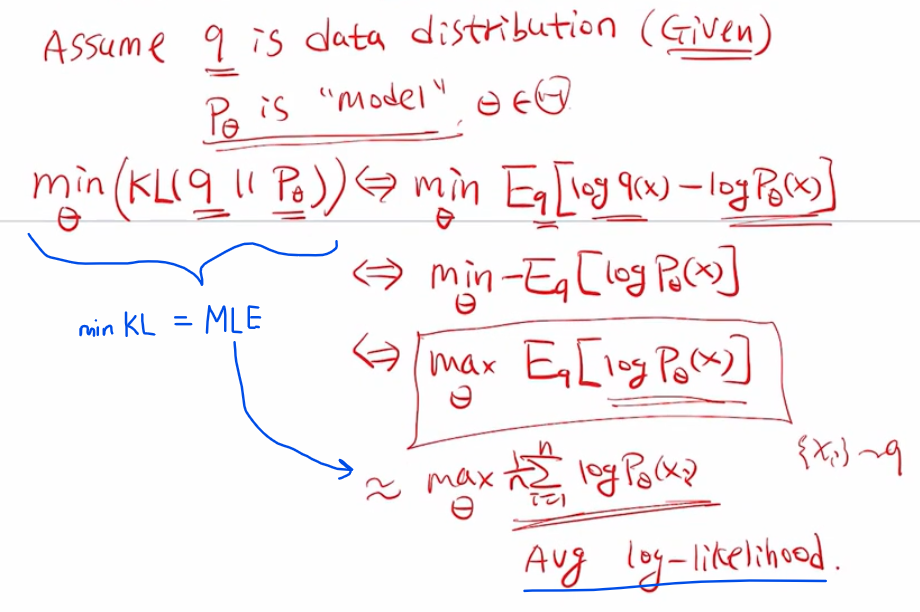 Assume q is data distribution (Given)
P_θ is "model", θ ∈ Θ
min_θ (KL(q || P_θ)) ⇔ min_θ E_q[log q(x) - log P_θ(x)]
⇔ min_θ -E_q[log P_θ(x)]
min KL = MLE
⇔ max_θ E_q[log P_θ(x)]
≈ max_θ 1/n Σ_{i=1}^n log P_θ(x_i) {x_i} ~ q
Avg log-likelihood.